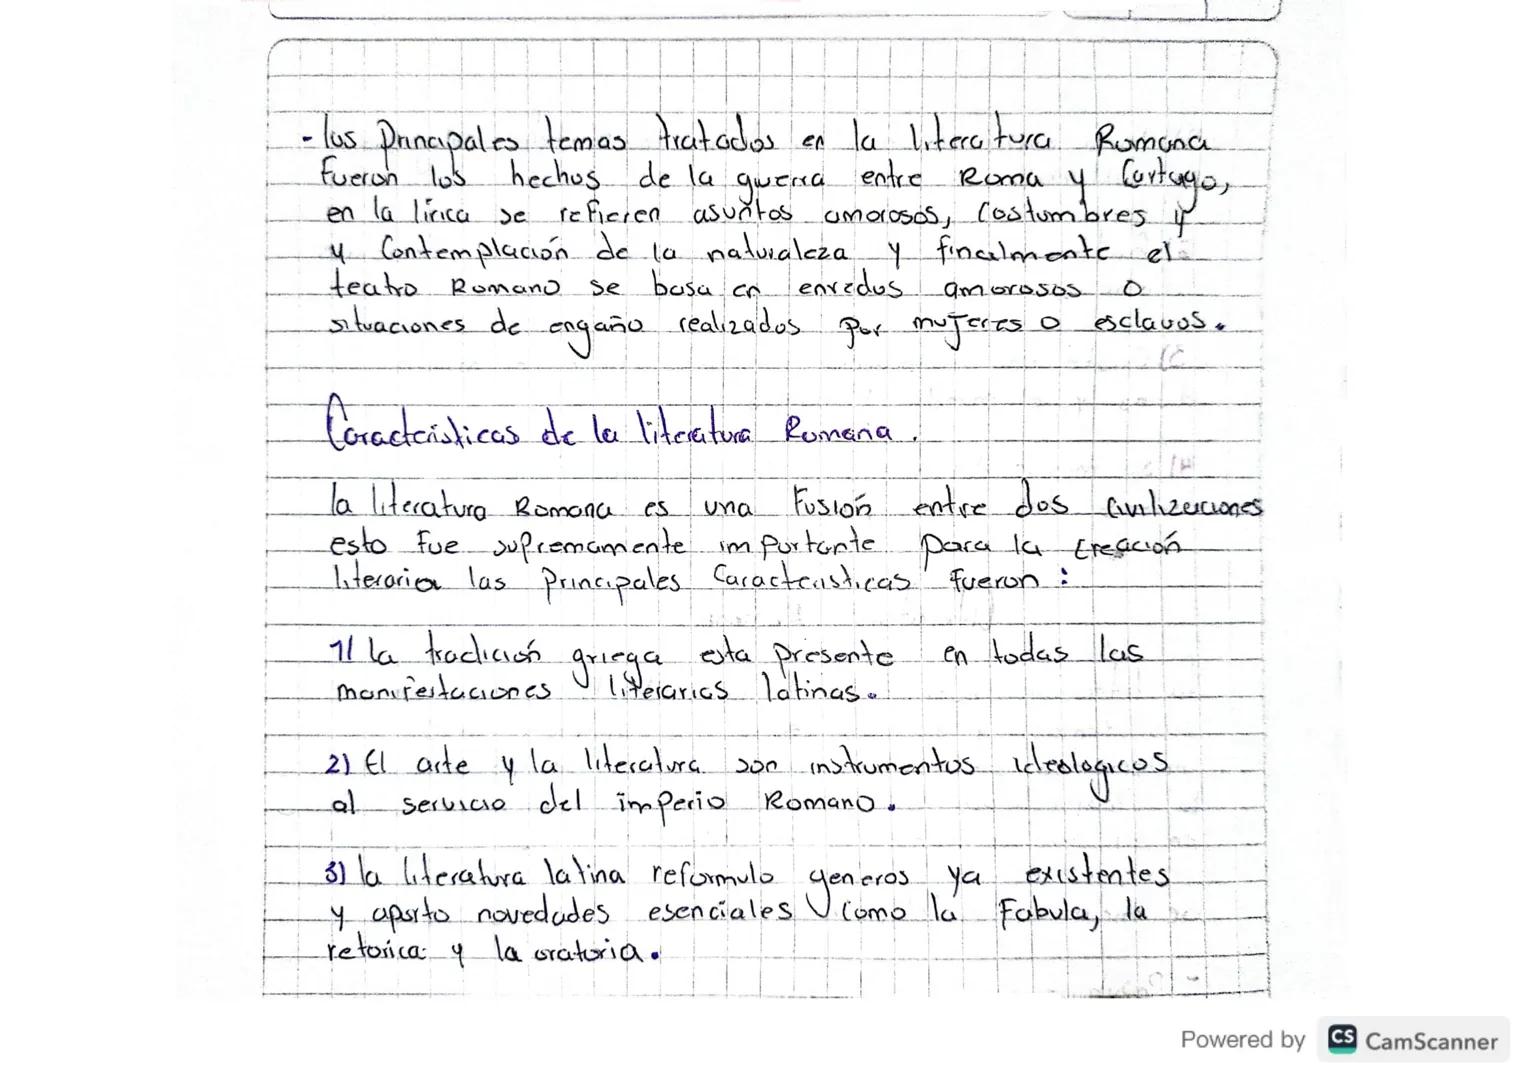 - los Principales temas tratados en la literatura Romana
fueron los hechos de la guerra entre Roma y Cartago,
en la lirica se refieren asuntos amorosos, Costumbres y
y Contemplación de la naturaleza y finalmente el
teatro Romano se basa en enredos amorosos o
situaciones de engaño realizados por mujeres o esclavos.
Caracteristicas de la literatura Romana.
la literatura Romana es una Fusión entre dos Civilizaciones
esto fue supremamente importante para la Creación
literaria las Principales Caracteristicas fueron :
1) la tradición griega esta presente en todas las
manifestaciones literarias latinas.
2) El arte y la literatura son instrumentos ideologicos
al servicio del imperio Romano.
3) la literatura latina reformulo generos ya existentes
y aporto novedades esenciales como la Fabula, la
retorica y la oratoria.
Powered by CS CamScanner